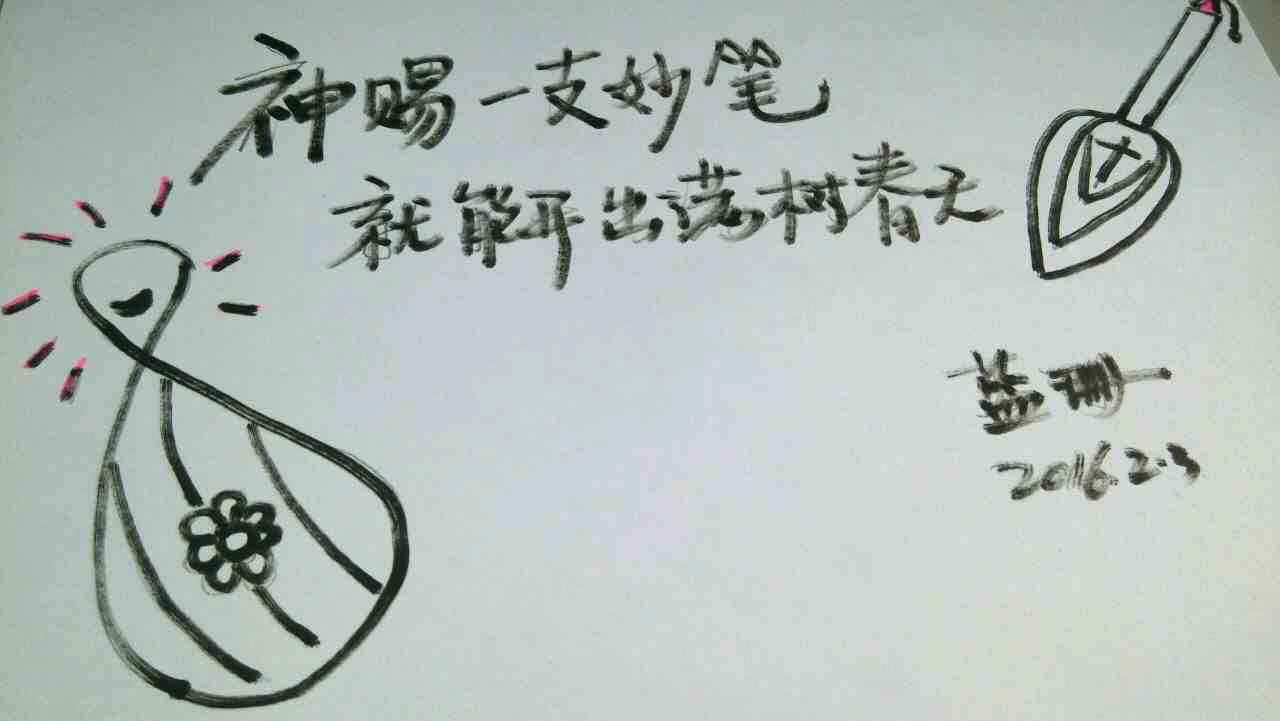 神赐一支妙笔
就能开出满树春天
蓝珊
2016.2.3